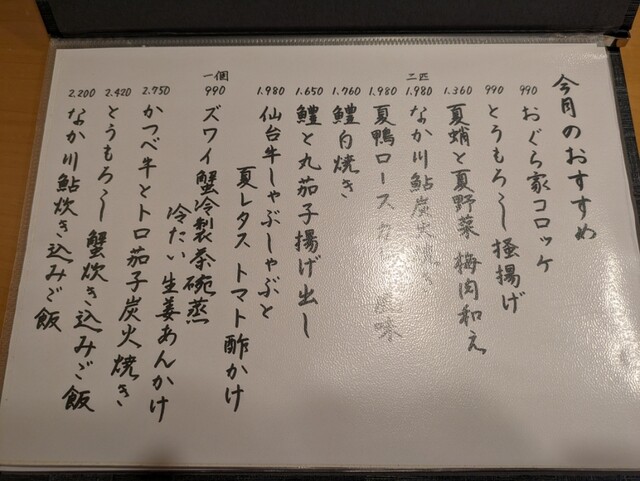 今月のおすすめ
990 おぐら家コロッケ
990 とうもろこし掻揚げ
1.360 夏蛸と夏野菜 梅肉和え
二匹
1.980 なか川鮎炭火焼き
1.980 夏鴨ロース 風味
1.760 鱧白焼き
1.650 鱧と丸茄子揚げ出し
1.980 仙台牛しゃぶしゃぶと
夏レタス トマト酢かけ
一個
990 ズワイ蟹冷製茶碗蒸
冷たい生姜あんかけ
2.750 かつべ牛とトロ茄子炭火焼き
2.420 とうもろこし 蟹炊き込みご飯
2.200 なか川鮎炊き込みご飯